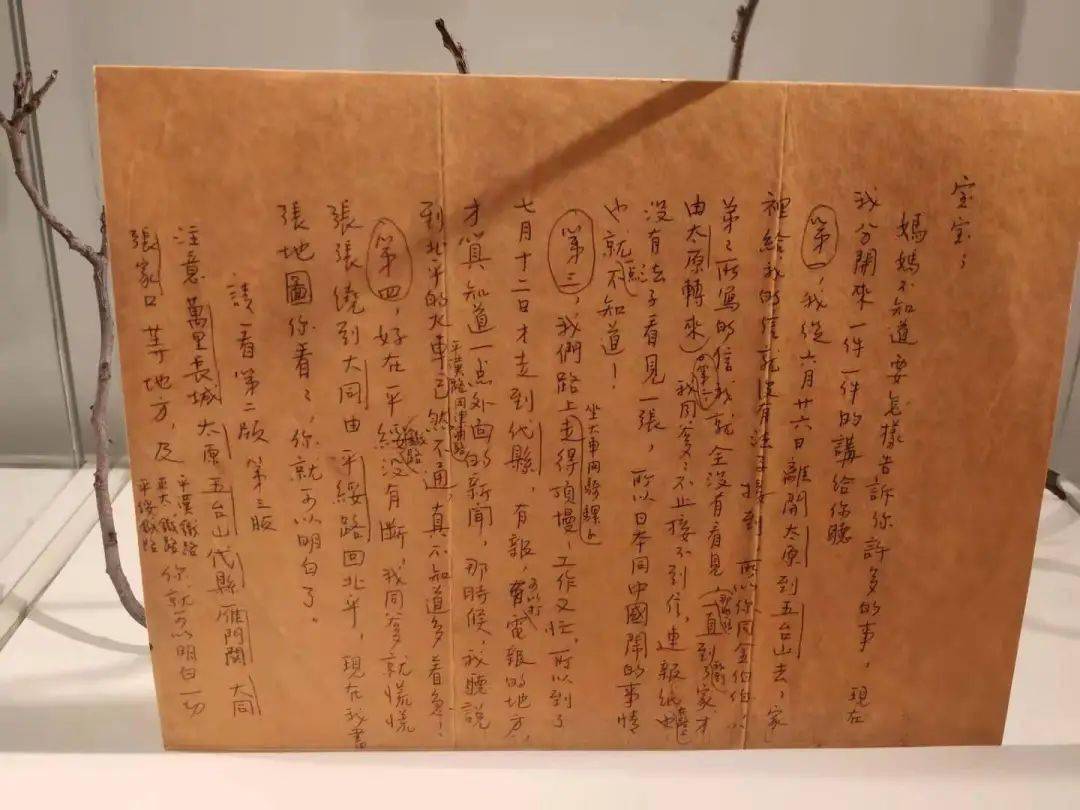 宝宝；
媽媽不知道要怎樣告訴你許多的事，現在
我分開來一件一件的講給你聽
第一，我從六月廿六日離開太原到五台山去，家
裡給我的信就沒有法子接到，所以你同金伯伯、小
弟弟所寫的信我就全沒有看見（那些信一直到我到家才
由太原轉來）第二，我同爹爹不止接不到信，連報紙也
沒有法子看見一張，所以日本同中國鬧的事情
也就一點不知道！
第三，我們路上坐大車同騎騾子走得頂慢，工作又忙，所以到了
七月十二日才走到代縣，有報，可以打電報的地方，
才算知道一点外面的新聞，那時候，我聽說
到北平的火車，平漢路同津浦路已然不通，真不知道多着急！
第四，好在平綏鐵路没有斷，我同爹爹就慌慌
張張繞到大同由平綏路回北平，現在我畫
張地圖你看看，你就可以明白了。
請看第二版 第三版
注意萬里長城 太原 五台山 代縣 雁門関 大同
張家口等地方，及平漢鐵路 正太鐵路 平綏鐵路 你就可以明白一切